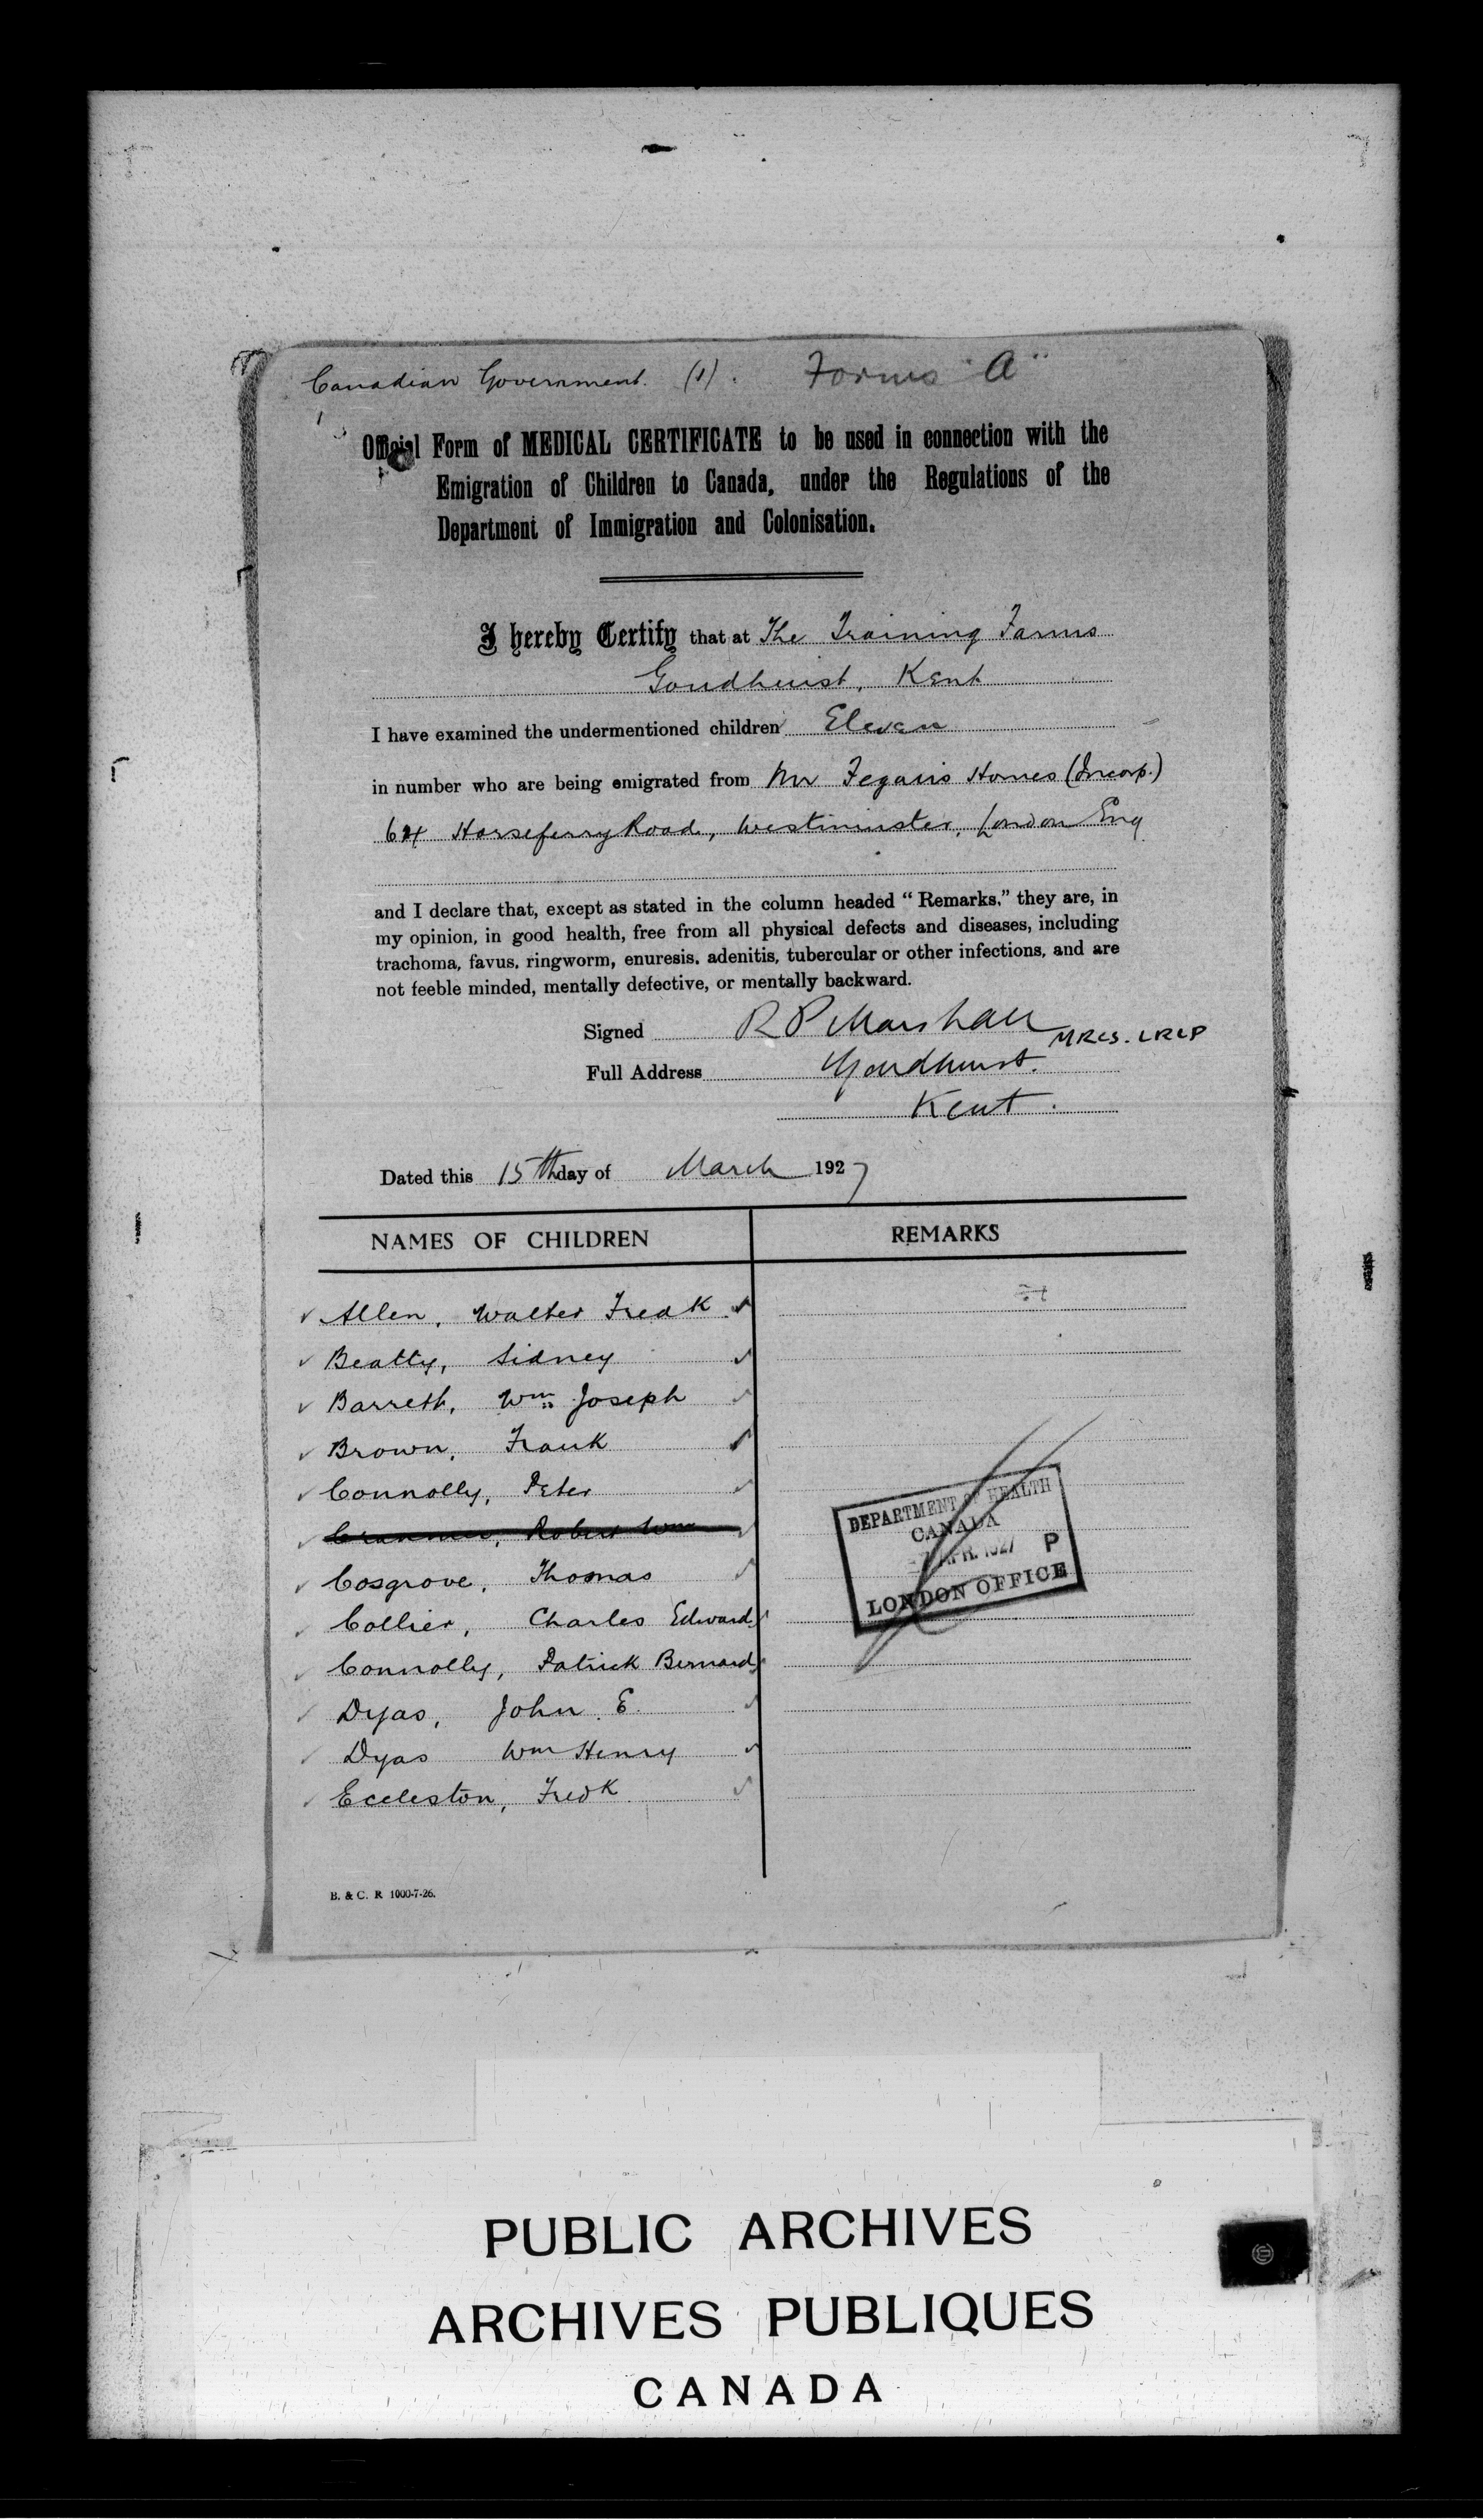 Canadian Government. (1). Forms "A"
Official Form of MEDICAL CERTIFICATE to be used in connection with the
Emigration of Children to Canada, under the Regulations of the
Department of Immigration and Colonisation.
I hereby Certify that at The Training Farms
Goudhurst, Kent
I have examined the undermentioned children Eleven
in number who are being emigrated from Mr Fegan's Homes (Incorp.)
64 Horseferry Road, Westminster, London Eng
and I declare that, except as stated in the column headed " Remarks," they are, in
my opinion, in good health, free from all physical defects and diseases, including
trachoma, favus, ringworm, enuresis, adenitis, tubercular or other infections, and are
not feeble minded, mentally defective, or mentally backward.
Signed R P Marshall MRCS. LRCP
Full Address Goudhurst.
Kent.
Dated this 15th day of March 1927
NAMES OF CHILDREN REMARKS
Allen, Walter Fredk
Beatty, Sidney
Barrett, Wm Joseph
Brown, Frank
Connolly, Peter
Robert Wm
Cosgrove, Thomas
Collier, Charles Edward
Connolly, Patrick Bernard
Dyas, John E.
Dyas Wm Henry
Eccleston, Fredk
DEPARTMENT OF HEALTH
CANADA
APR. 1927 P
LONDON OFFICE
B. & C. R 1000-7-26.
PUBLIC ARCHIVES
ARCHIVES PUBLIQUES
CANADA